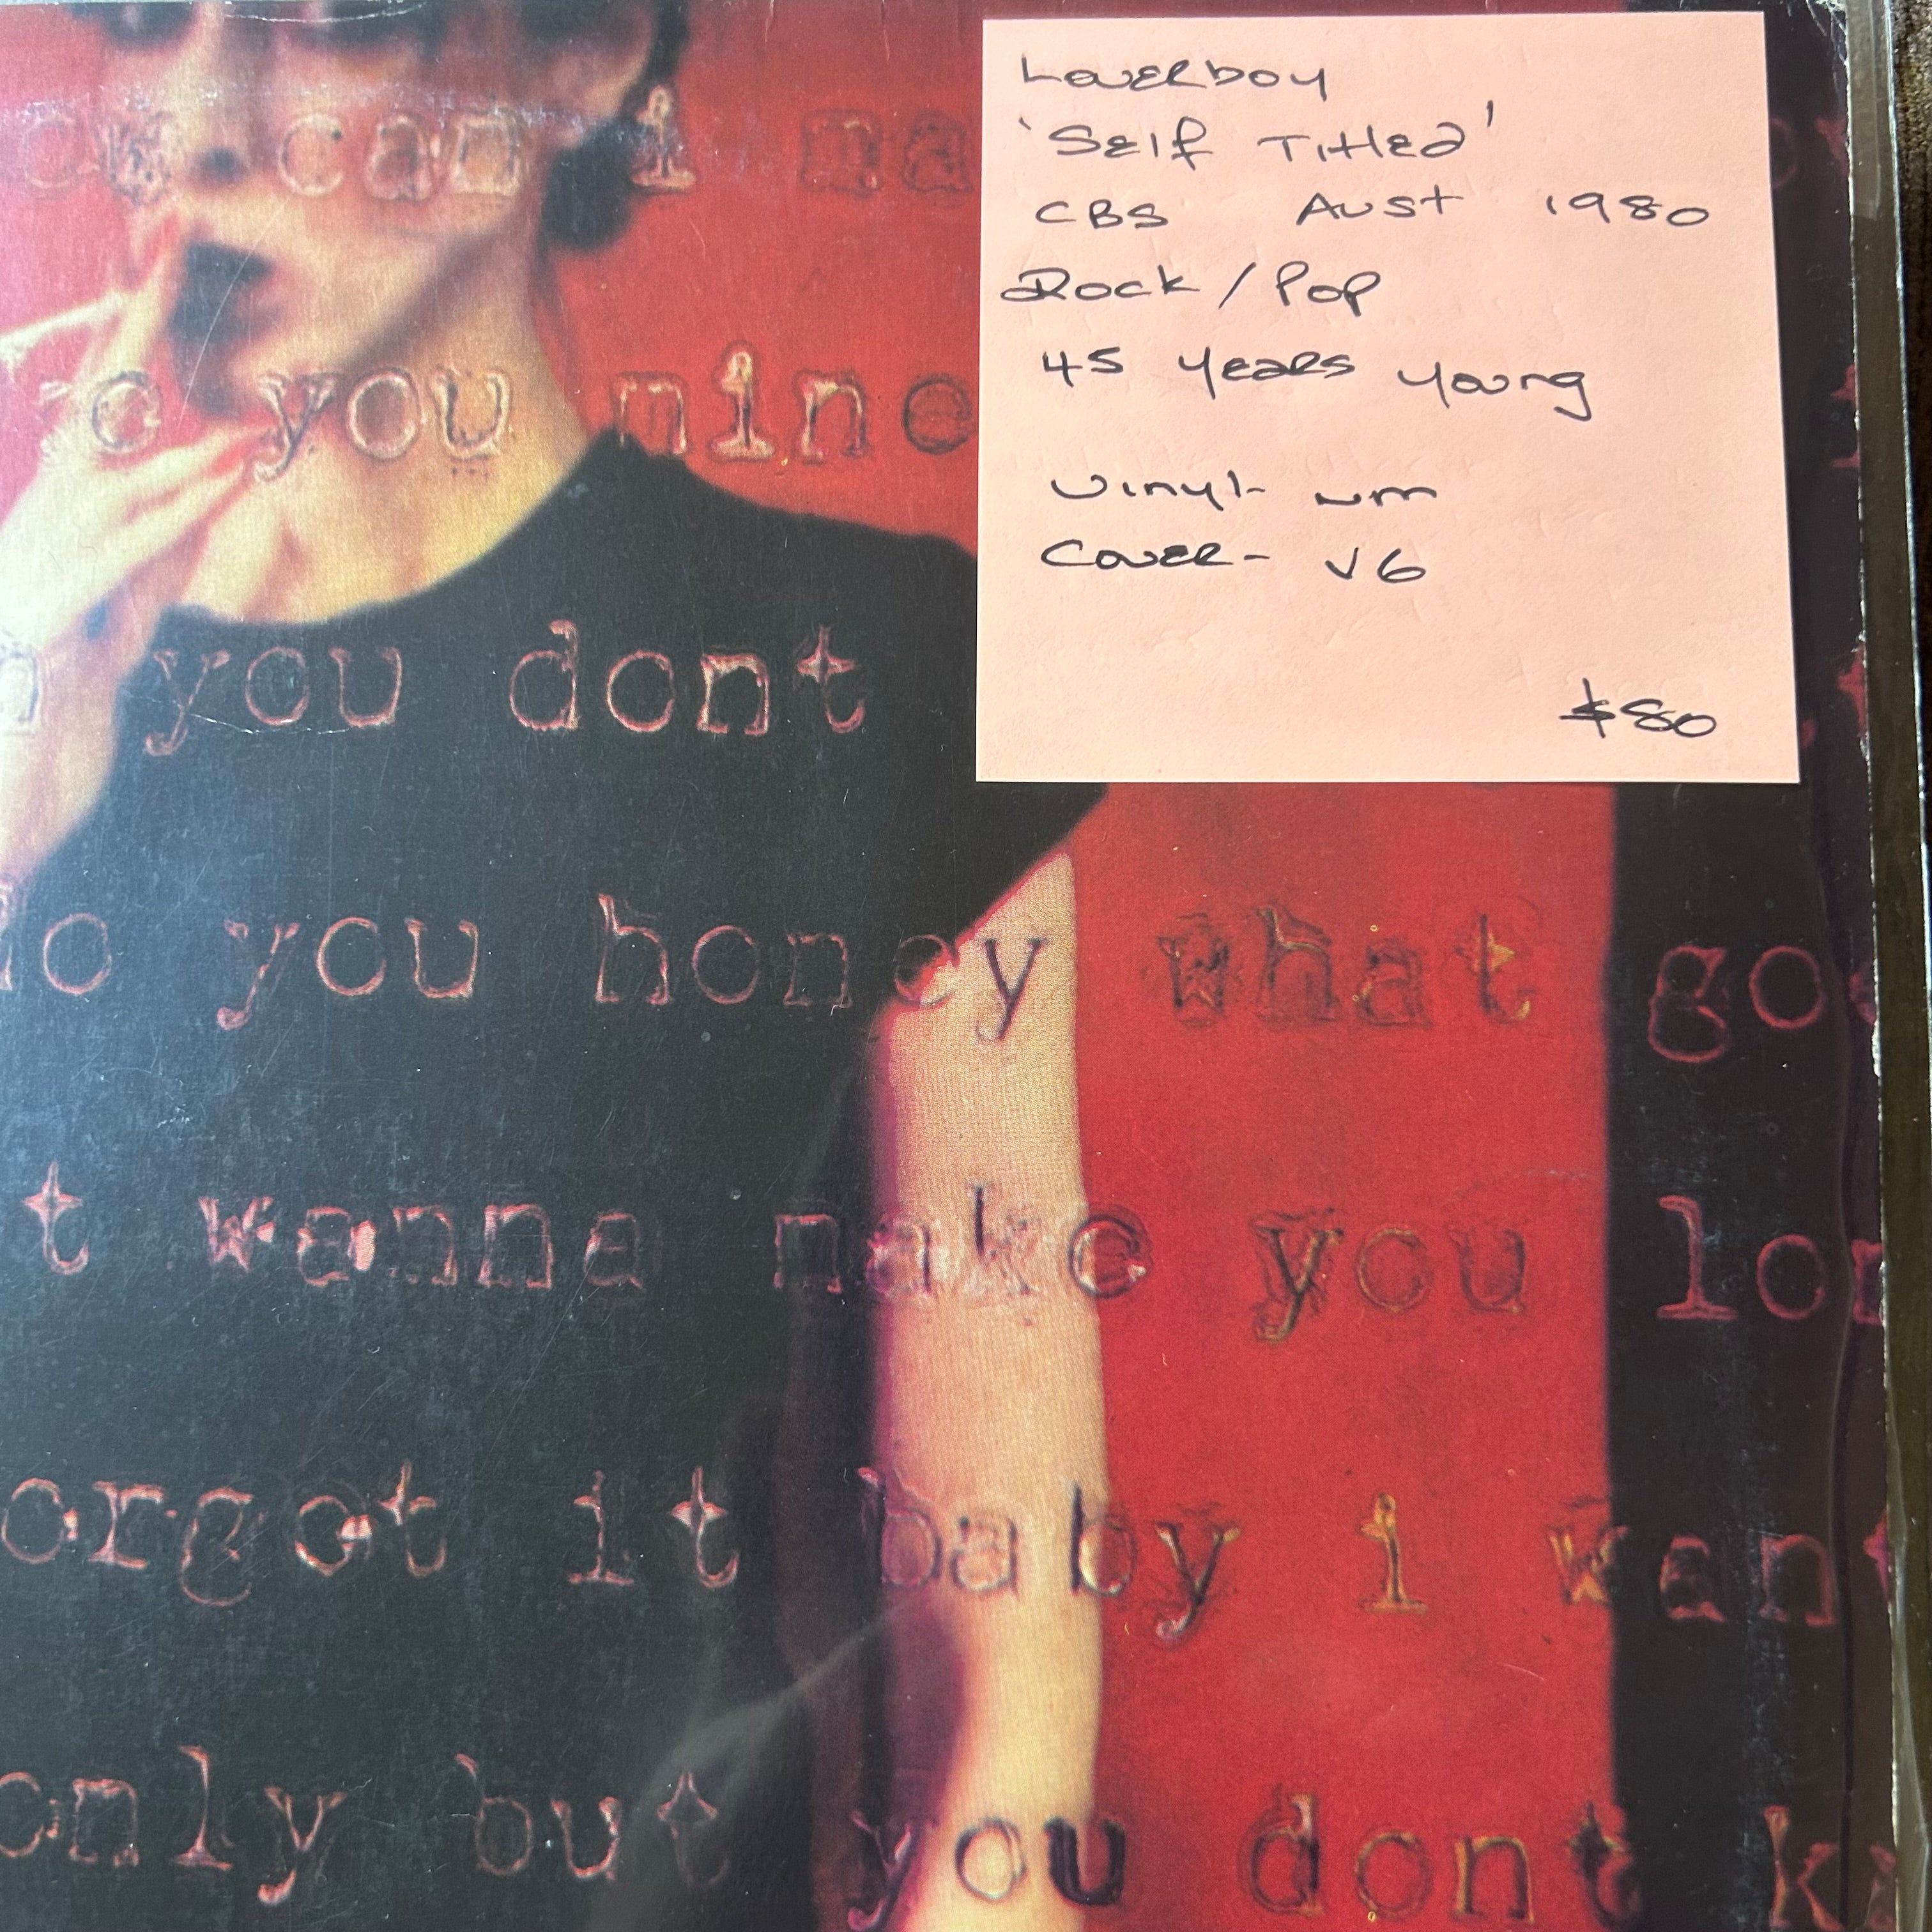 Loverboy
'Self Titled'
CBS Aust 1980
Rock / Pop
45 years young
Vinyl- NM
Cover- VG
$80
can i ma
you mine
you dont
do you honey what go
t wanna make you lon
orget it baby i want
only but you dont k